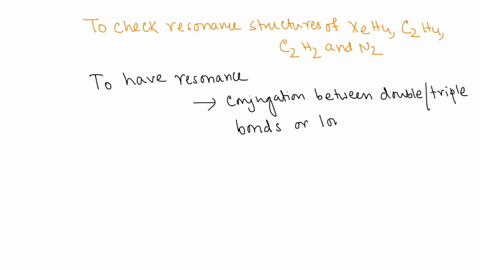 To check resonance structures of XeH4, C2H4,
C2H2 and N2
To have resonance
→ conjugation between double/triple
bonds or lo